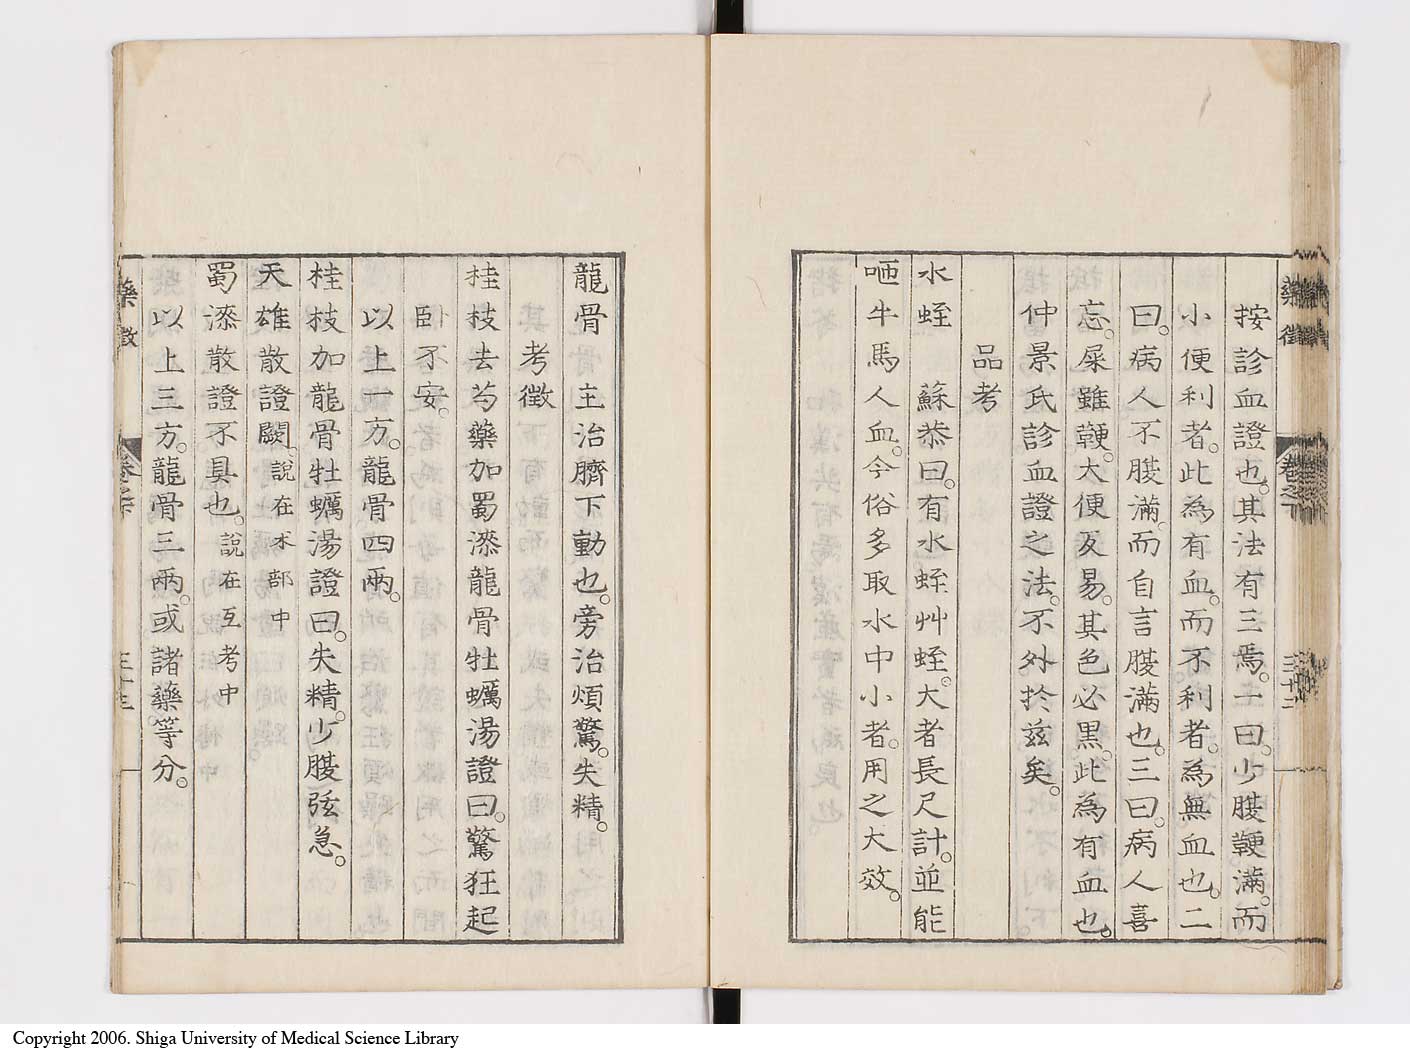 藥徴 卷之下 三十二
按診血證也。其法有三焉。一曰。少腹鞕滿。而
小便利者。此為有血。而不利者。為無血也。二
曰。病人不腹滿。而自言腹滿也。三曰。病人喜
忘。屎雖鞕。大便反易。其色必黒。此為有血也。
仲景氏診血證之法。不外於兹矣。
品考
水蛭 蘇恭曰。有水蛭艸蛭。大者長尺計。並能
咂牛馬人血。今俗多取水中小者。用之大效。
龍骨 主治臍下動也。旁治煩驚。失精。
考徴
桂枝去芍藥加蜀漆龍骨牡蠣湯證曰。驚狂起
臥不安。
以上一方。龍骨四兩。
桂枝加龍骨牡蠣湯證曰。失精。少腹弦急。
天雄散證闕。説在朮部中
蜀漆散證不具也。説在互考中
以上三方。龍骨三兩。或諸藥等分。
藥徴 卷之下 三十三
Copyright 2006. Shiga University of Medical Science Library